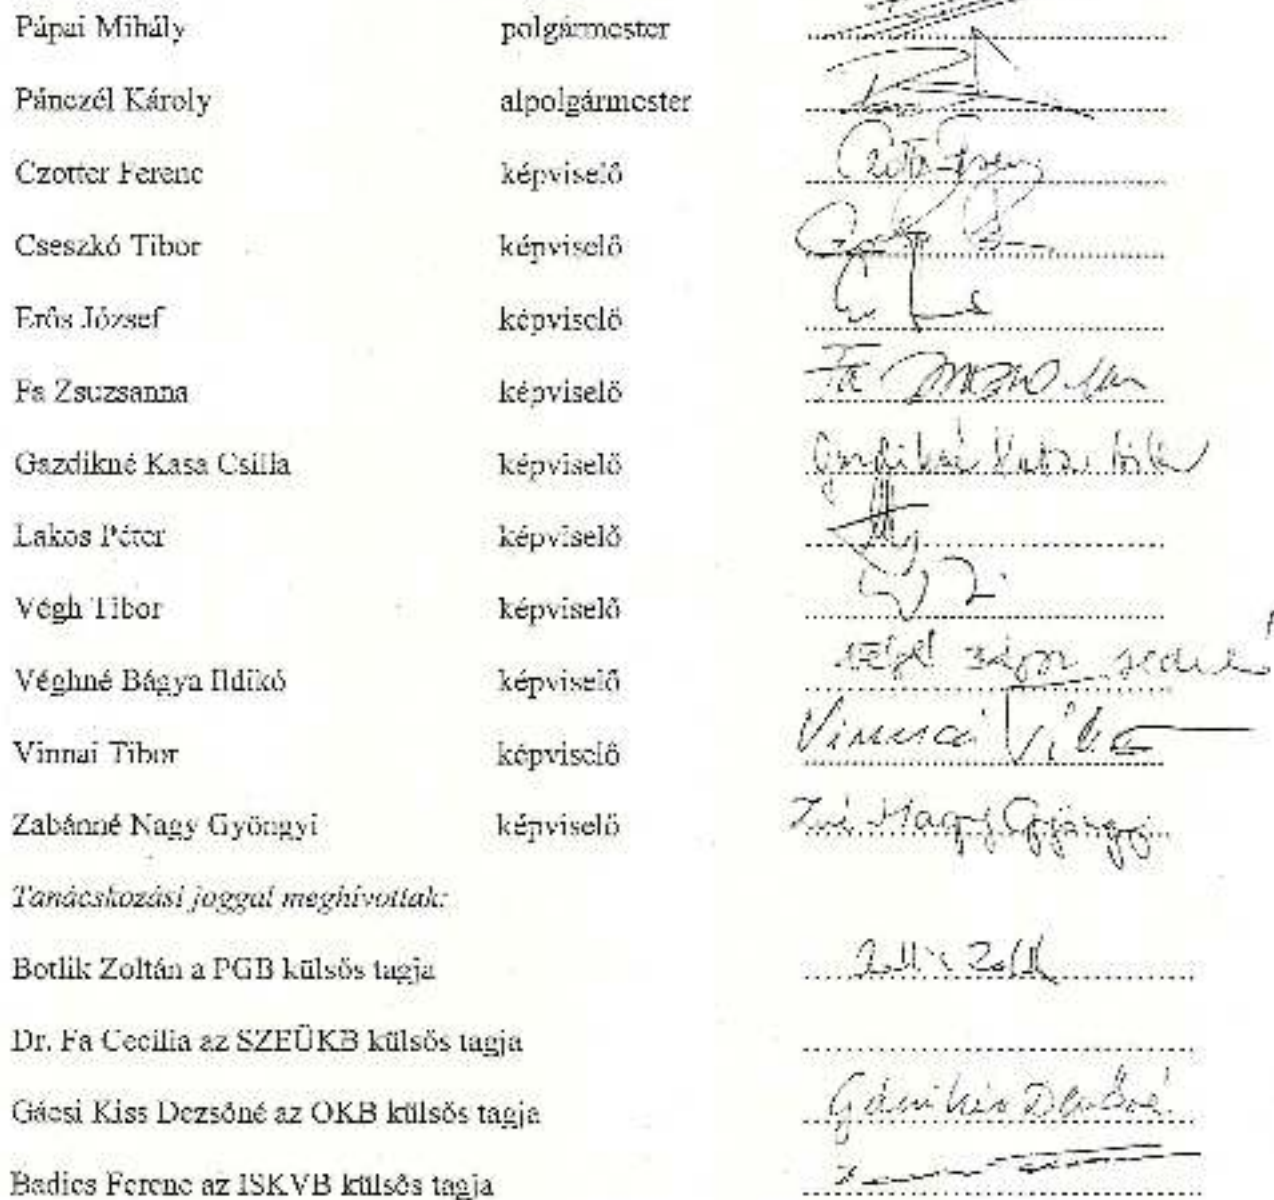 Pápai Mihály polgármester
Pánczél Károly alpolgármester
Czotter Ferenc képviselő
Cseszkó Tibor képviselő
Erős József képviselő
Fa Zsuzsanna képviselő Fa Zsuzsanna
Gazdikné Kasa Csilla képviselő Gazdikné Kasa Csilla
Lakos Péter képviselő
Végh Tibor képviselő
Véghné Bágya Ildikó képviselő
Vinnai Tibor képviselő Vinnai Tibor
Zabánné Nagy Gyöngyi képviselő Zné Nagy Gyöngyi
Tanácskozási joggal meghívottak:
Botlik Zoltán a PGB külsős tagja
Dr. Fa Cecilia az SZEÜKB külsős tagja
Gácsi Kiss Dezsőné az OKB külsős tagja Gácsi Kiss Dezsőné
Badics Ferenc az ISKVB külsős tagja